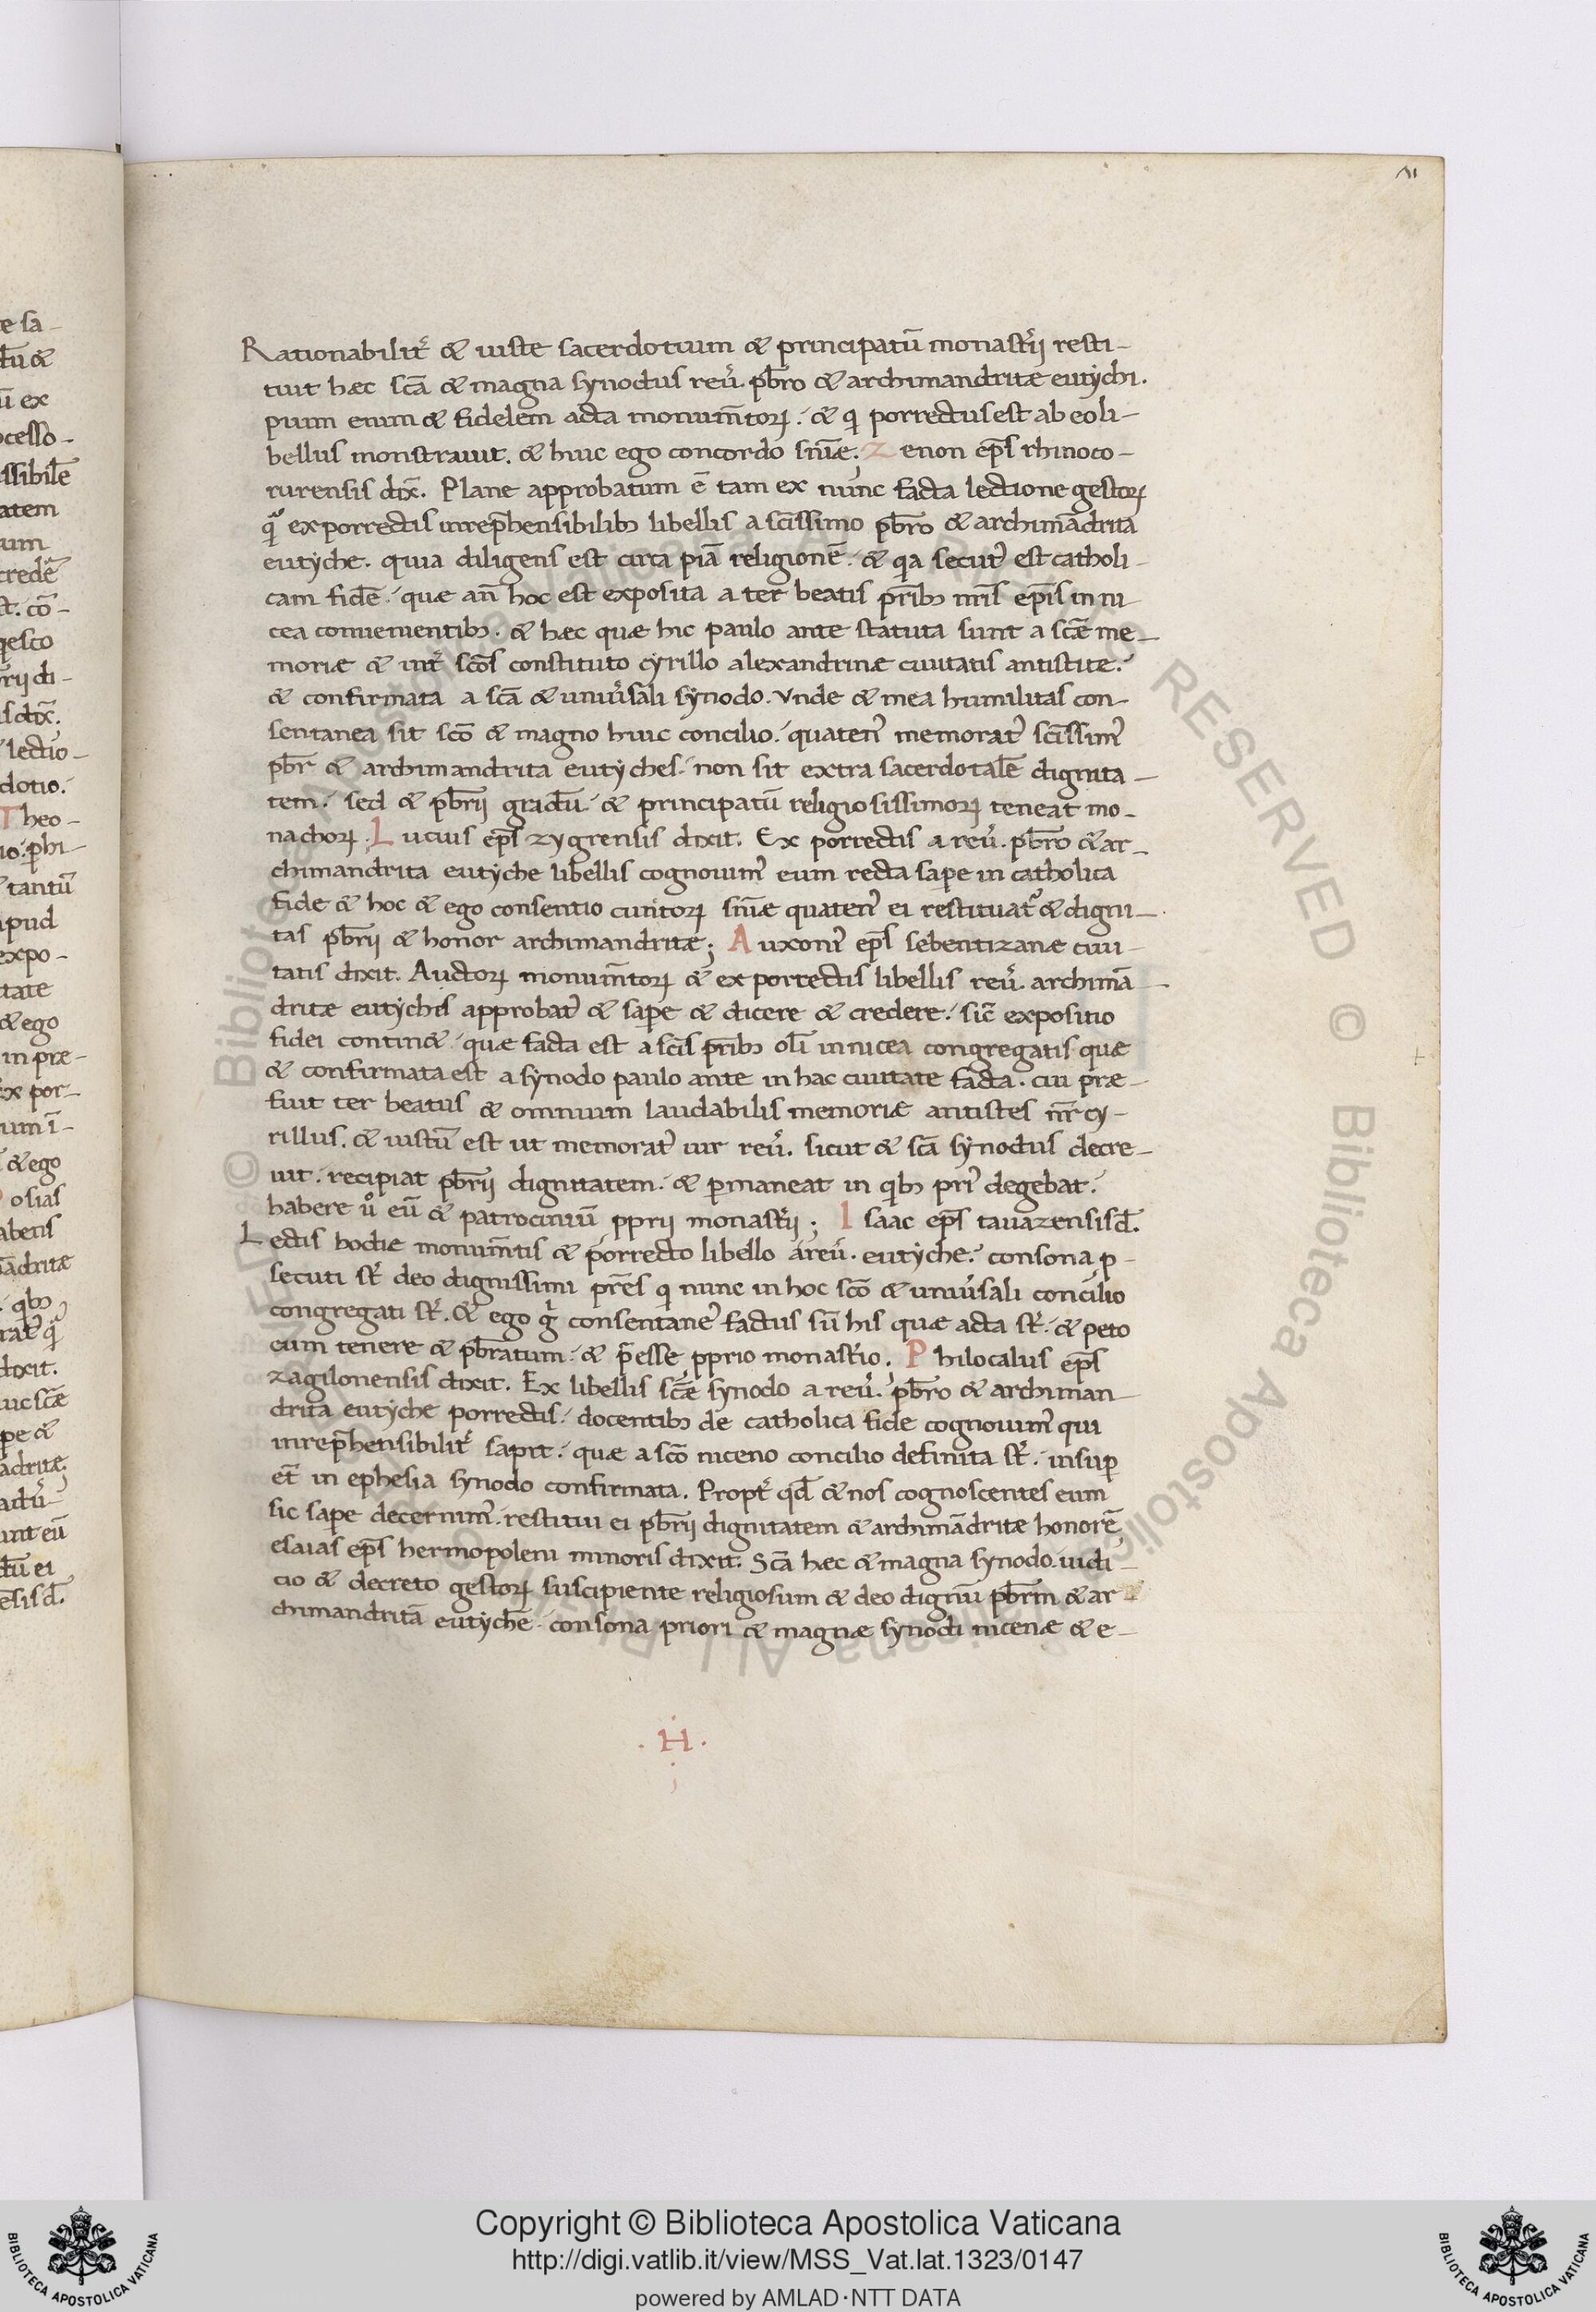 Rationabilit̄ & iuste sacerdotium & principatū monast̄ii resti-
tuit hæc scā & magna synodus reu̅. pb̄ro & archimandritæ eutychi.
pium enim & fidelem acta monum̄torꝝ. & qͥ porrectus est ab eo li-
bellus monstrauit. & huic ego concordo sn̄iæ. Zenon ep̄s rhinoco-
rurensis dix̄. Plane approbatum ē tam ex nunc facta lectione gestorꝝ
qͣ̄ ex porrectis inrep̄hensibilibꝫ libellis a sc̄issimo pb̄ro & archimādrita
eutyche. quia diligens est circa piā religionē. & qͥa secut᾽ est catholi-
cam fidē. quæ an̄ hoc est exposita a ter beatis pr̄ibꝫ nr̄is ep̄is in ni-
cea conuenientibꝫ. & hæc quæ hic paulo ante statuta sunt a scǣ me-
moriæ & int̄ scōs constituto cyrillo alexandrinæ ciuitatis antistite.
& confirmata a scā & uniu̅sali synodo. Vnde & mea humilitas con-
sentanea sit scō & magno huic concilio. quaten᾽ memorat᾽ sc̄issim᾽
pb̄r & archimandrita eutyches. non sit extra sacerdotalē dignita-
tem. sed & pb̄rii gradū. & principatū religiosissimorꝝ teneat mo-
nachorꝝ. Lucius ep̄s zygrensis dixit. Ex porrectis a reu̅. pb̄ro & ar-
chimandrita eutyche libellis cognouim᾽ eum recta sapē in catholica
fide & hoc & ego consentio cunctorꝝ sn̄iæ quaten᾽ ei restituat᾽ & digni-
tas pb̄rii & honor archimandritæ; Auxoni᾽ ep̄s sebentizanæ ciui-
tatis dixit. Auctorꝝ monum̄torꝝ & ex porrectis libellis reu̅. archimā-
dritæ eutychis approbat᾽ & sapē & dicere & credere. sic̄ expositio
fidei contin&. quæ facta est a scīs pr̄ibꝫ oli̅ in nicea congregatis quæ
& confirmata est a synodo paulo ante in hac ciuitate facta. cui præ-
fuit ter beatus & omnium laudabilis memoriæ antistes nr̄ cy-
rillus. & iustū est ut memorat᾽ uir reu̅. sicut & scā synodus decre-
uit. recipiat pb̄rii dignitatem. & ꝑmaneat in qͥbꝫ pri᾽ degebat.
habere uͦ eū & patrociniū ꝓprii monast̄ii; Isaac ep̄s tauazensis d̄.
Lectis hodie monum̄tis & porrecto libello a reu̅. eutyche. consona p-
secuti st̄ deo dignissimi pr̄es qͥ nunc in hoc scō & uniu̅sali concilio
congregati st̄. & ego gͥ consentane᾽ factus sū his quæ acta st̄. & peto
eum tenere & pb̄ratum. & p̄esse ꝓprio monast̄io. Philocalus ep̄s
zagilonensis dixit. Ex libellis scǣ synodo a reu̅. pb̄ro & archiman-
drita eutyche porrectis. docentibꝫ de catholica fide cognouim᾽ qui
inrep̄hensibilit̄ sapit. quæ a scō niceno concilio definita st̄. insuꝑ
et̄ in ephesia synodo confirmata. Propt̄ qd̄ & nos cognoscentes eum
sic sapē decernim᾽. restitui ei pb̄rii dignitatem & archimādritæ honorē
esaias ep̄s hermopoleni minoris dixit. Scā hæc & magna synodo. iudi-
cio & decreto gestorꝝ suscipiente religiosum & deo dignū pb̄rm & ar-
chimandritā eutychē. consona priori & magnæ synodi nicenæ & e-
.H.
Copyright © Biblioteca Apostolica Vaticana
http://digi.vatlib.it/view/MSS_Vat.lat.1323/0147
powered by AMLAD·NTT DATA